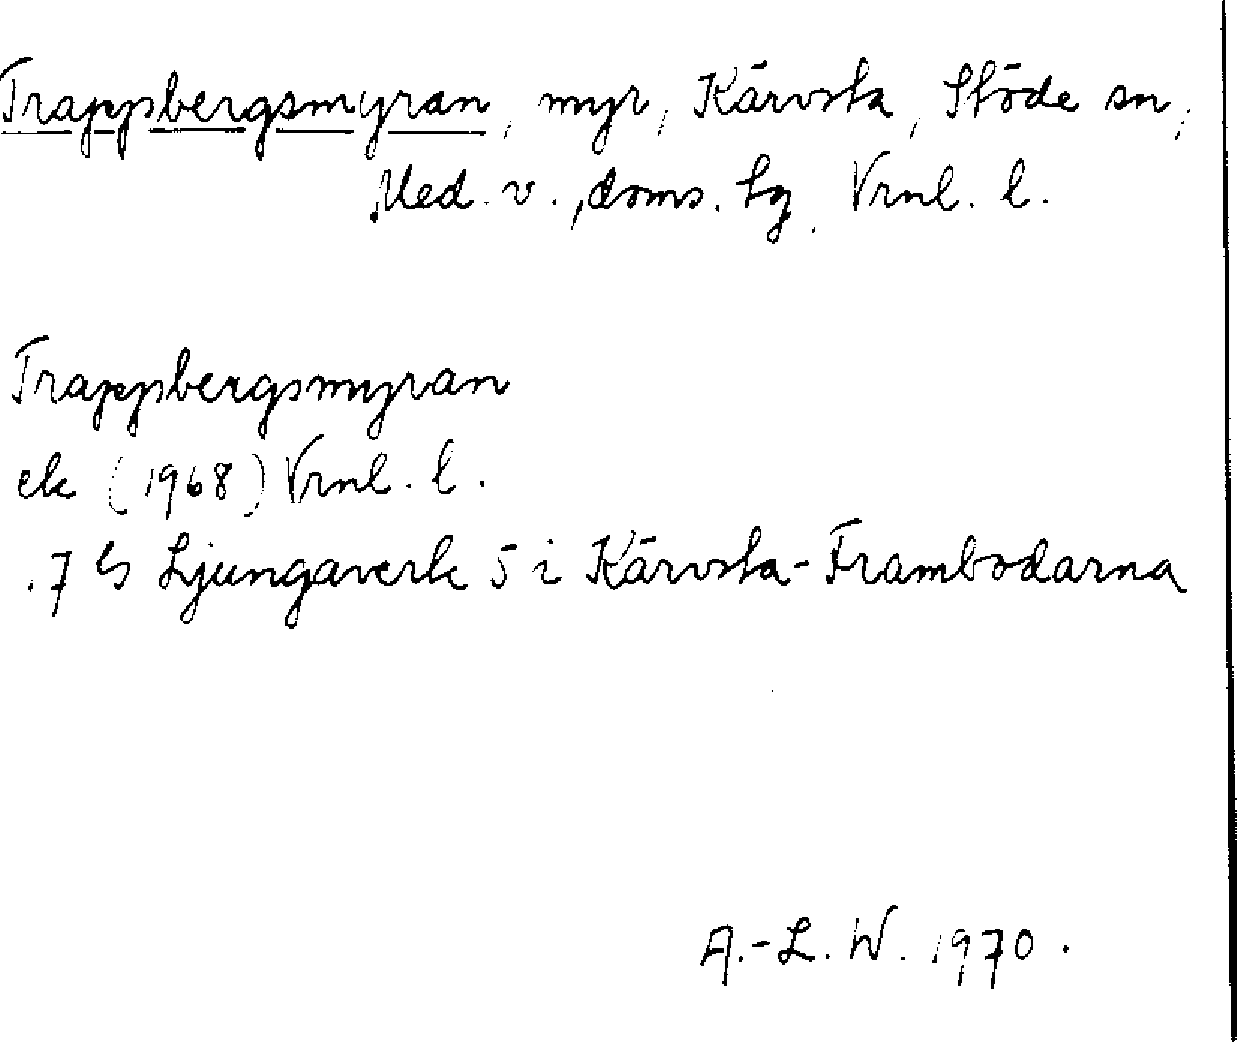 Trappbergsmyran, myr, Kärvsta, Stöde sn,
Med. v., doms. hg. Vrnl. l.
Trappbergsmyran
ek (1968) Vrnl. l.
7 b Ljungaverk 5 i Kärvsta-Frambodarna
A.-L. W. 1970.